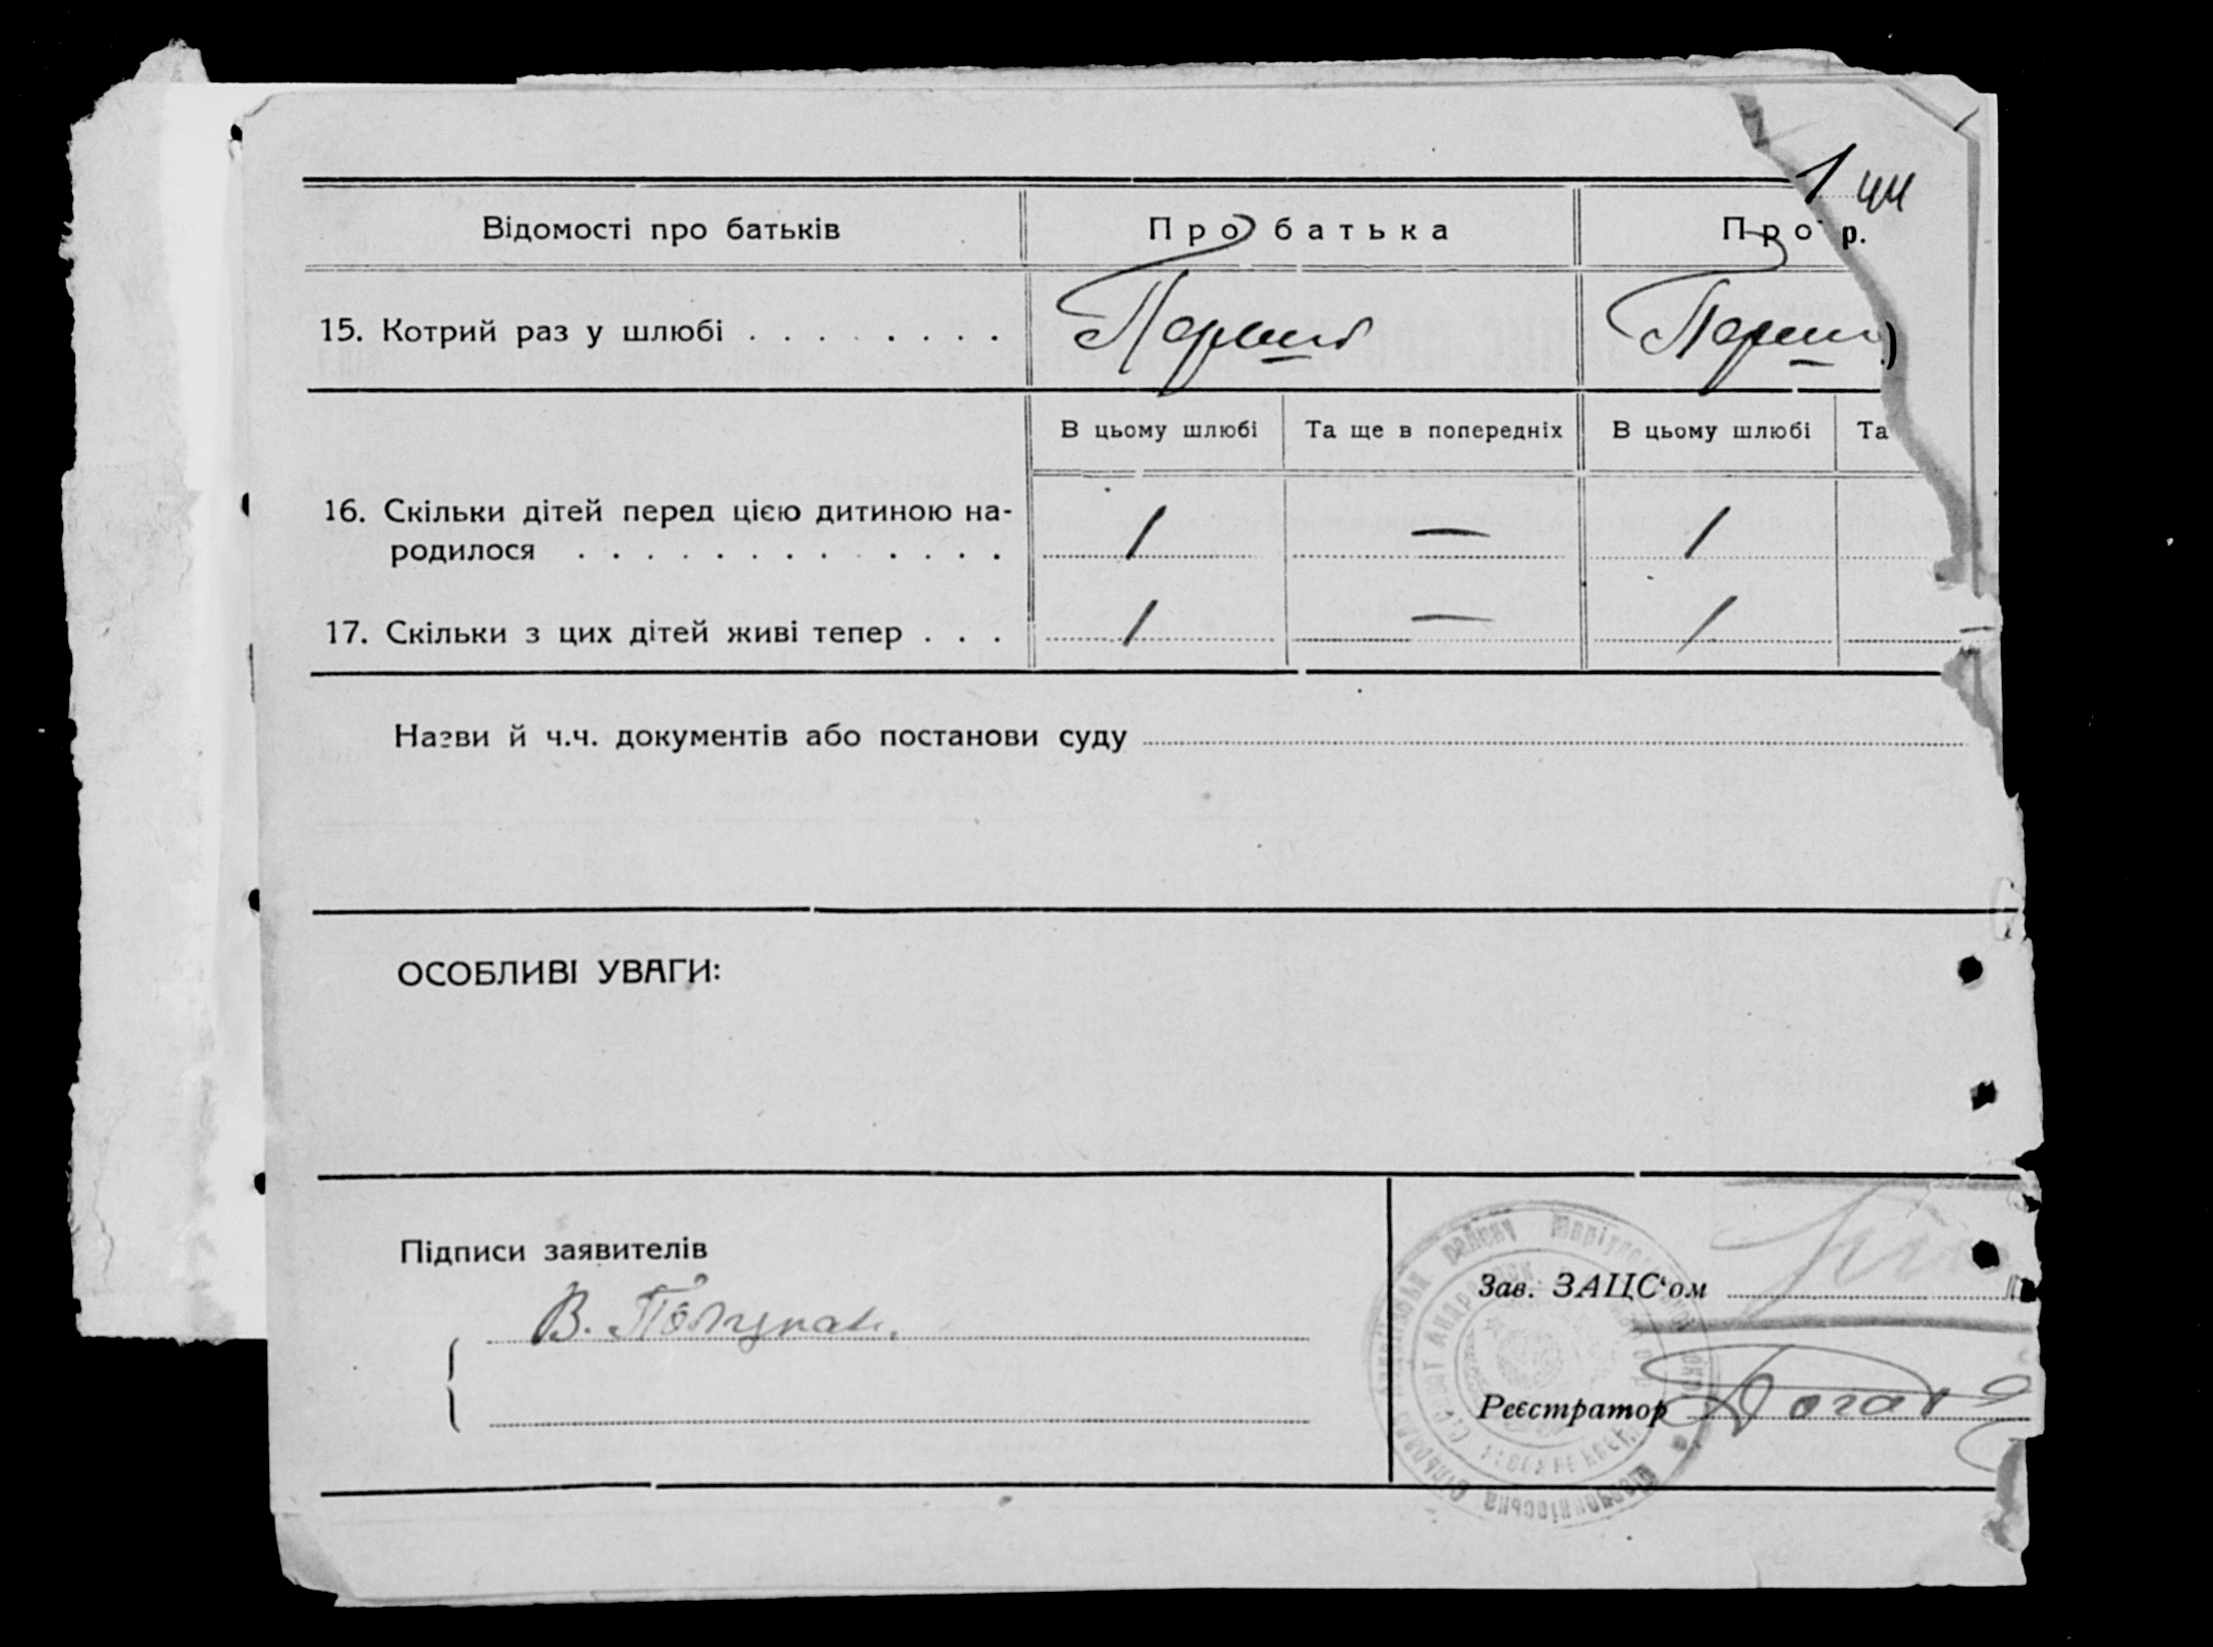 1 44
Відомості про батьків Про батька Про р.
15. Котрий раз у шлюбі . . . . . . . . Перший Перши )
В цьому шлюбі Та ще в попередніх В цьому шлюбі Та
16. Скільки дітей перед цією дитиною на-
родилося . . . . . . . . . . . . . 1 — 1
17. Скільки з цих дітей живі тепер . . . 1 — 1
Назви й ч.ч. документів або постанови суду
ОСОБЛИВІ УВАГИ:
Підписи заявителів
В.
Зав. ЗАЦС'ом
Реєстратор
району